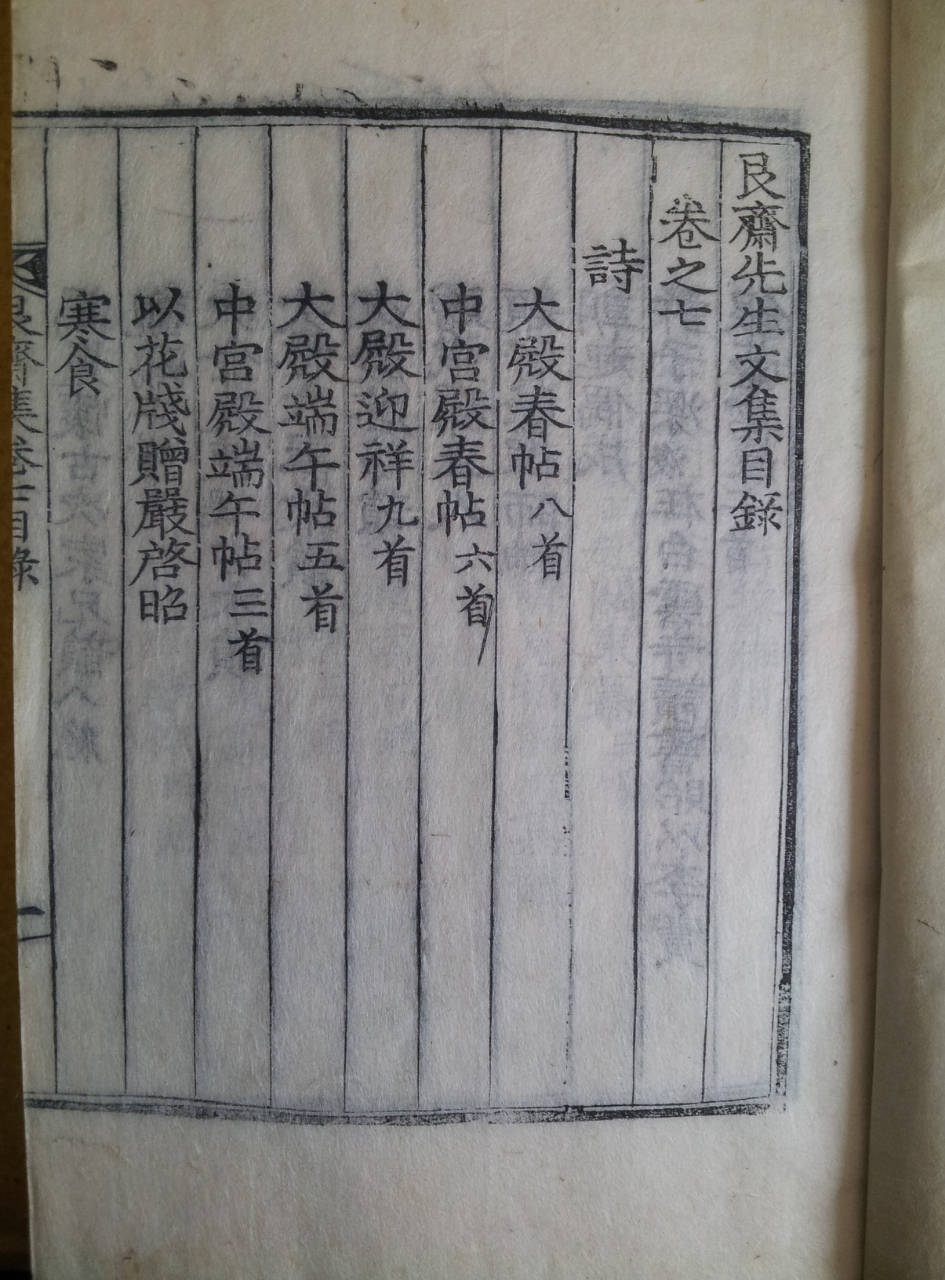 艮齋先生文集目錄
卷之七
詩
大殿春帖八首
中宮殿春帖六首
大殿迎祥九首
大殿端午帖五首
中宮殿端午帖三首
以花牋贈嚴啓昭
寒食
艮齋集卷七目錄
一